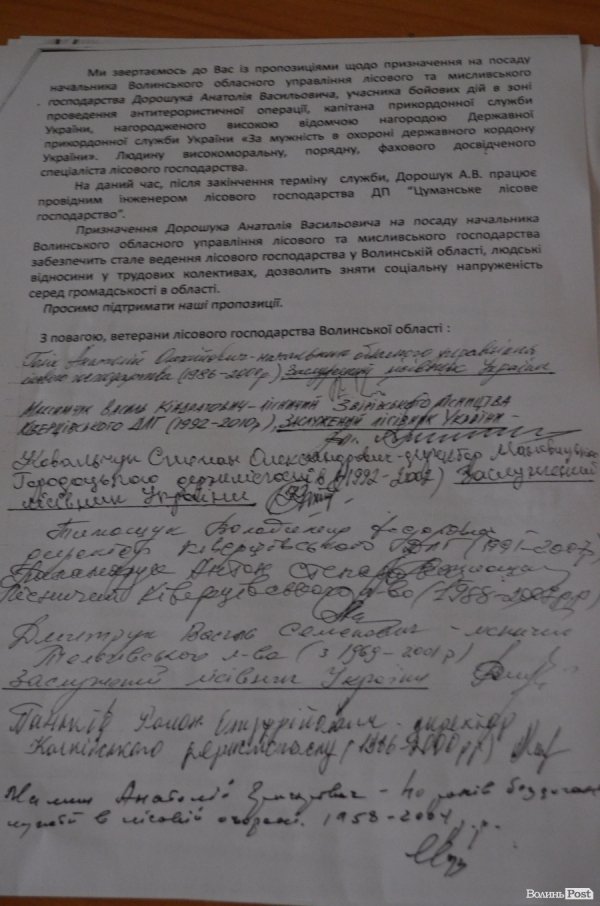 Ми звертаємось до Вас із пропозиціями щодо призначення на посаду
начальника Волинського обласного управління лісового та мисливського
господарства Дорошука Анатолія Васильовича, учасника бойових дій в зоні
проведення антитерористичної операції, капітана прикордонної служби
України, нагородженого високою відомчою нагородою Державної
прикордонної служби України «За мужність в охороні державного кордону
України». Людину високоморальну, порядну, фахового досвідченого
спеціаліста лісового господарства.
На даний час, після закінчення терміну служби, Дорошук А.В. працює
провідним інженером лісового господарства ДП "Цуманське лісове
господарство".
Призначення Дорошука Анатолія Васильовича на посаду начальника
Волинського обласного управління лісового та мисливського господарства
забезпечить стале ведення лісового господарства у Волинській області, людські
відносини у трудових колективах, дозволить зняти соціальну напруженість
серед громадськості в області.
Просимо підтримати наші пропозиції.
З повагою, ветерани лісового господарства Волинської області :
Анатолій - начальник обласного управління
лісового господарства (1986-2000р) Заслужений лісівник України
Василь - лісничий лісництва
Ківерцівського ДЛГ (1992-2010р), Заслужений лісівник України -
Ковальчук Степан Олександрович - директор
Городоцького держлісгоспів (1992-2007) Заслужений
лісівник України
Тимощук Володимир Федорович
директор Ківерцівського ДЛГ (1991-2007)
Антон
лісничий Ківерцівського л-во (1988-
Дмитрук Василь Семенович - лісничий
л-ва (з 1969-2001р)
Заслужений лісівник України
Роман - директор
Колківського держлісгоспу (1986-2000рр)
Анатолій - 40 років
в лісовій охороні. 1958-2004 р.р.
Волинь Post